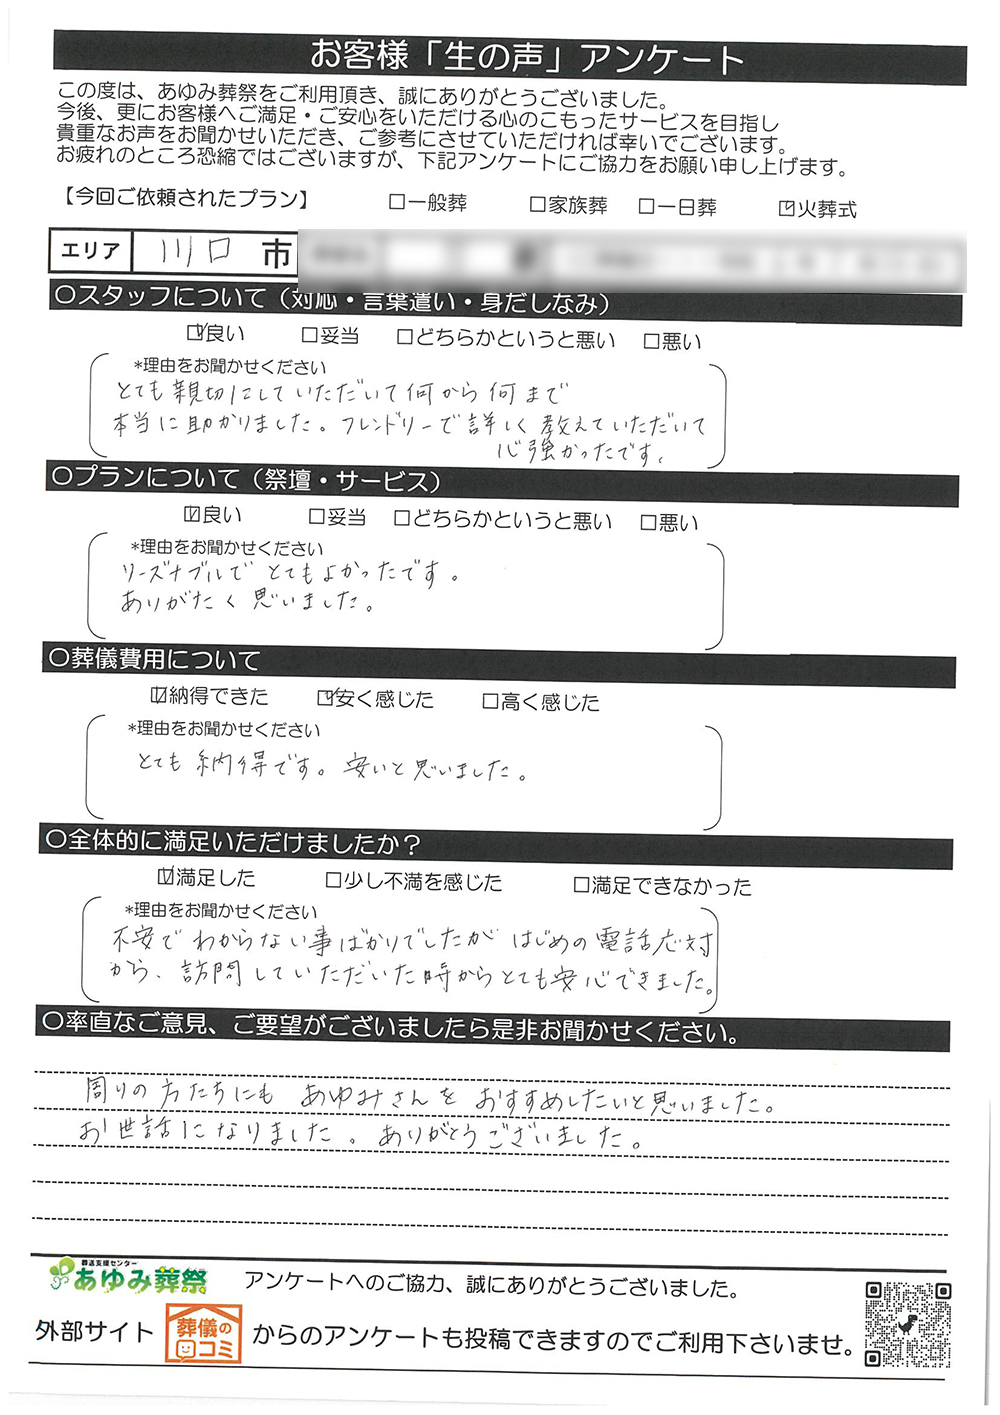 お客様「生の声」アンケート
この度は、あゆみ葬祭をご利用頂き、誠にありがとうございました。
今後、更にお客様へご満足・ご安心をいただける心のこもったサービスを目指し
貴重なお声をお聞かせいただき、ご参考にさせていただければ幸いでございます。
お疲れのところ恐縮ではございますが、下記アンケートにご協力をお願い申し上げます。
【今回ご依頼されたプラン】 □一般葬 □家族葬 □一日葬 ☑火葬式
エリア 川口 市
○スタッフについて（対応・言葉遣い・身だしなみ）
☑良い □妥当 □どちらかというと悪い □悪い
*理由をお聞かせください
とても親切にしていただいて何から何まで
本当に助かりました。フレンドリーで詳しく教えていただいて
心強かったです。
○プランについて（祭壇・サービス）
☑良い □妥当 □どちらかというと悪い □悪い
*理由をお聞かせください
リーズナブルでとてもよかったです。
ありがたく思いました。
○葬儀費用について
☑納得できた ☑安く感じた □高く感じた
*理由をお聞かせください
とても納得です。安いと思いました。
○全体的に満足いただけましたか？
☑満足した □少し不満を感じた □満足できなかった
*理由をお聞かせください
不安でわからない事ばかりでしたがはじめの電話応対
から、訪問していただいた時からとても安心できました。
○率直なご意見、ご要望がございましたら是非お聞かせください。
周りの方たちにもあゆみさんをおすすめしたいと思いました。
お世話になりました。ありがとうございました。
葬送支援センター
あゆみ葬祭 アンケートへのご協力、誠にありがとうございました。
外部サイト 葬儀の口コミ からのアンケートも投稿できますのでご利用下さいませ。